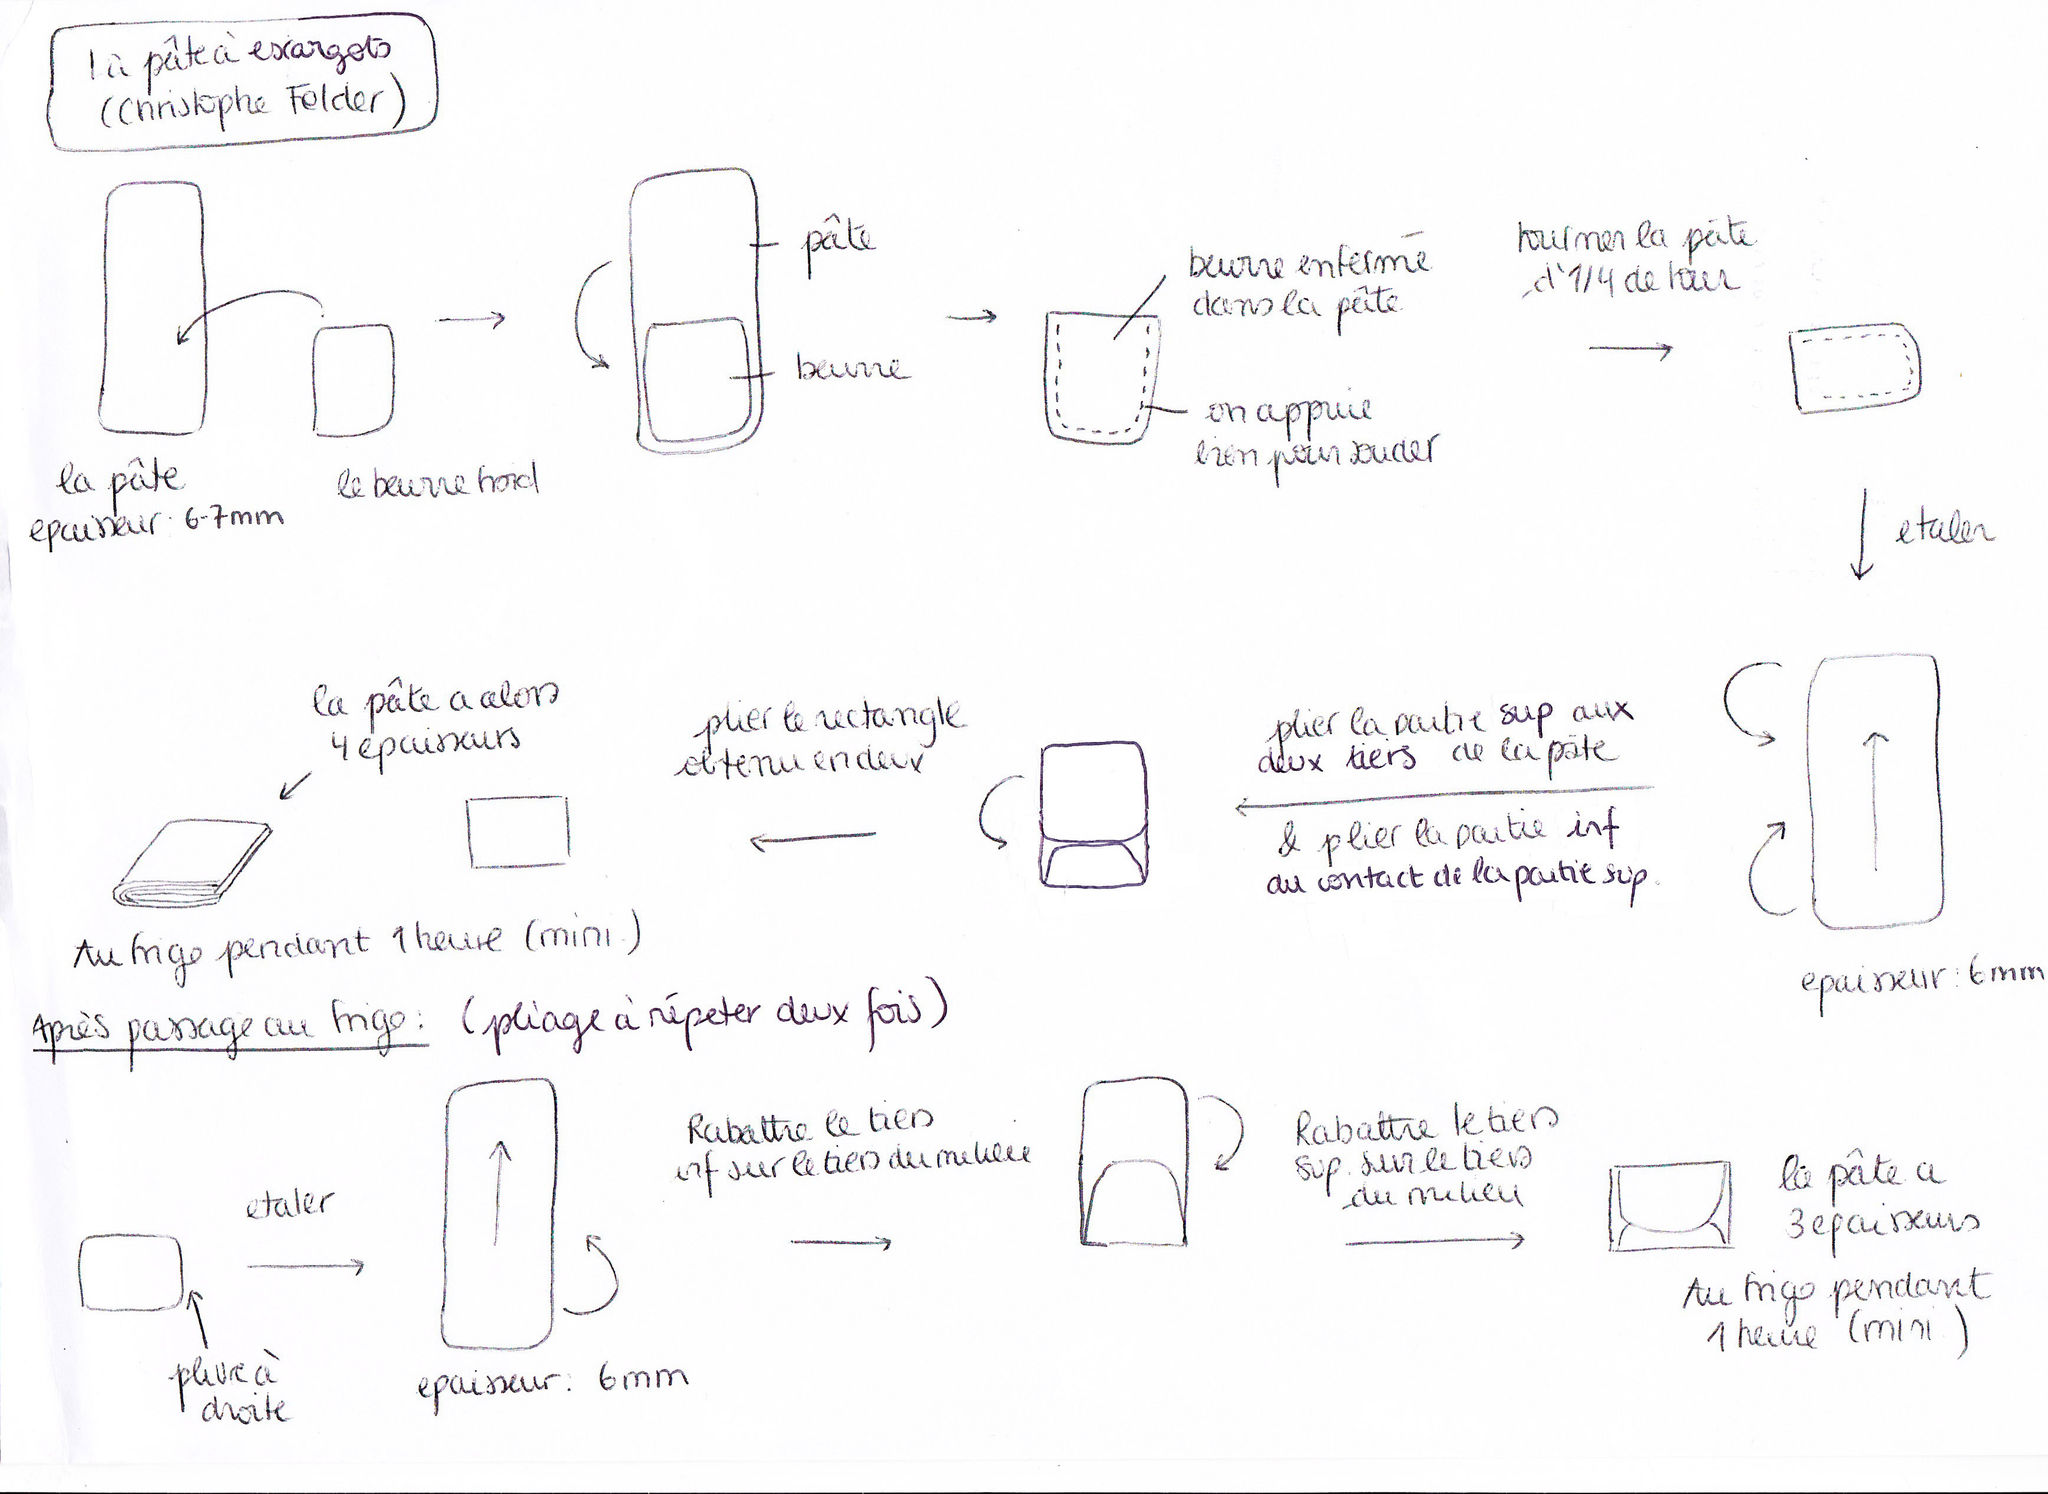 la pâte à escargots
(Christophe Felder)
pâte
beurre
beurre enfermé
dans la pâte
on appuie
bien pour souder
tourner la pâte
d'1/4 de tour
la pâte
epaisseur: 6-7mm
le beurre froid
etaler
la pâte a alors
4 epaisseurs
plier le rectangle
obtenu en deux
plier la partie sup aux
deux tiers de la pâte
& plier la partie inf
au contact de la partie sup.
epaisseur: 6mm
Au frigo pendant 1 heure (mini.)
Après passage au frigo: (pliage à répeter deux fois)
etaler
pliure à
droite
epaisseur: 6mm
Rabattre le tiers
inf sur le tiers du milieu
Rabattre le tiers
sup. sur le tiers
du milieu
la pâte a
3 epaisseurs
Au frigo pendant
1 heure (mini.)